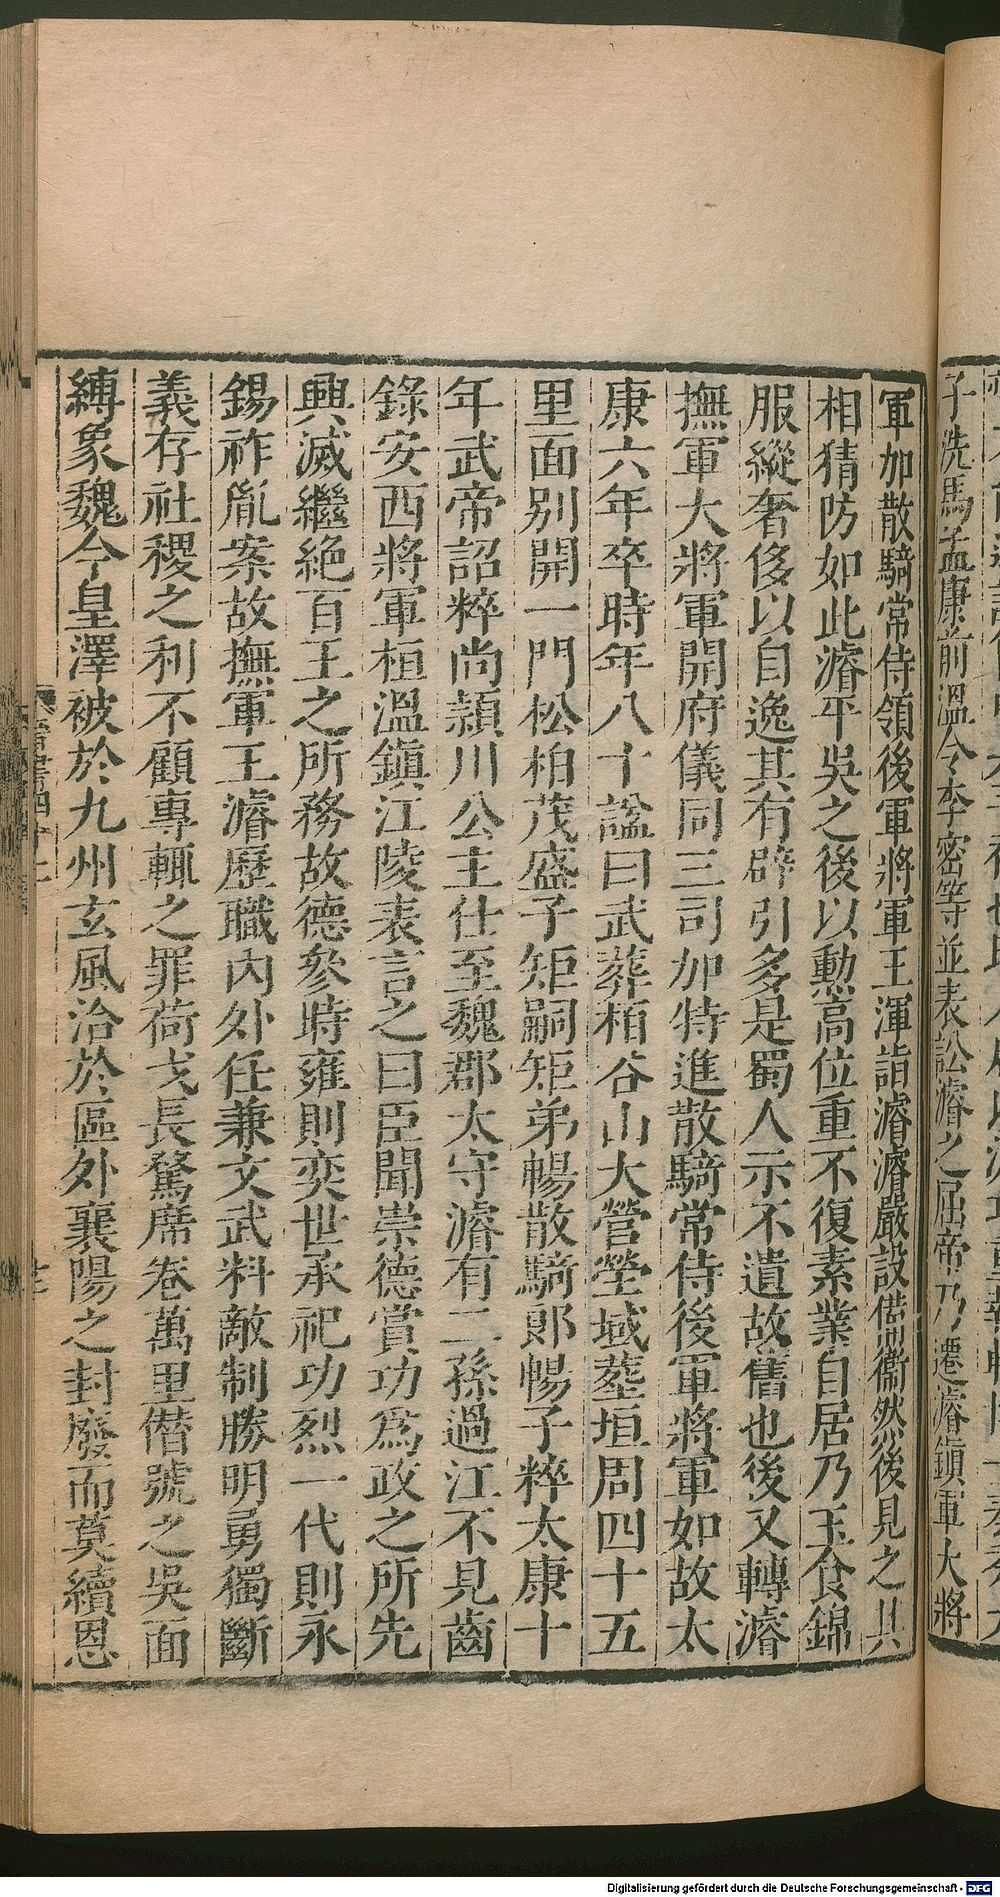 子洗馬孟康前溫令李密等並表訟濬之屈帝乃遷濬鎮軍大將
軍加散騎常侍領後軍將軍王渾詣濬濬嚴設備衞然後見之其
相猜防如此濬平吳之後以勳高位重不復素業自居乃玉食錦
服縱奢侈以自逸其有辟引多是蜀人示不遺故舊也後又轉濬
撫軍大將軍開府儀同三司加特進散騎常侍後軍將軍如故太
康六年卒時年八十諡曰武葬栢谷山大營塋域葬垣周四十五
里面別開一門松柏茂盛子矩嗣矩弟暢散騎郞暢子粹太康十
年武帝詔粹尚潁川公主仕至魏郡太守濬有二孫過江不見齒
錄安西將軍桓溫鎭江陵表言之曰臣聞崇德賞功爲政之所先
興滅繼絶百王之所務故德參時雍則奕世承祀功烈一代則永
錫祚胤案故撫軍王濬歷職內外任兼文武料敵制勝明勇獨斷
義存社稷之利不顧專輒之罪荷戈長騖席卷萬里僭號之吳面
縛象魏今皇澤被於九州玄風洽於區外襄陽之封廢而莫續恩
Digitalisierung gefördert durch die Deutsche Forschungsgemeinschaft - DFG